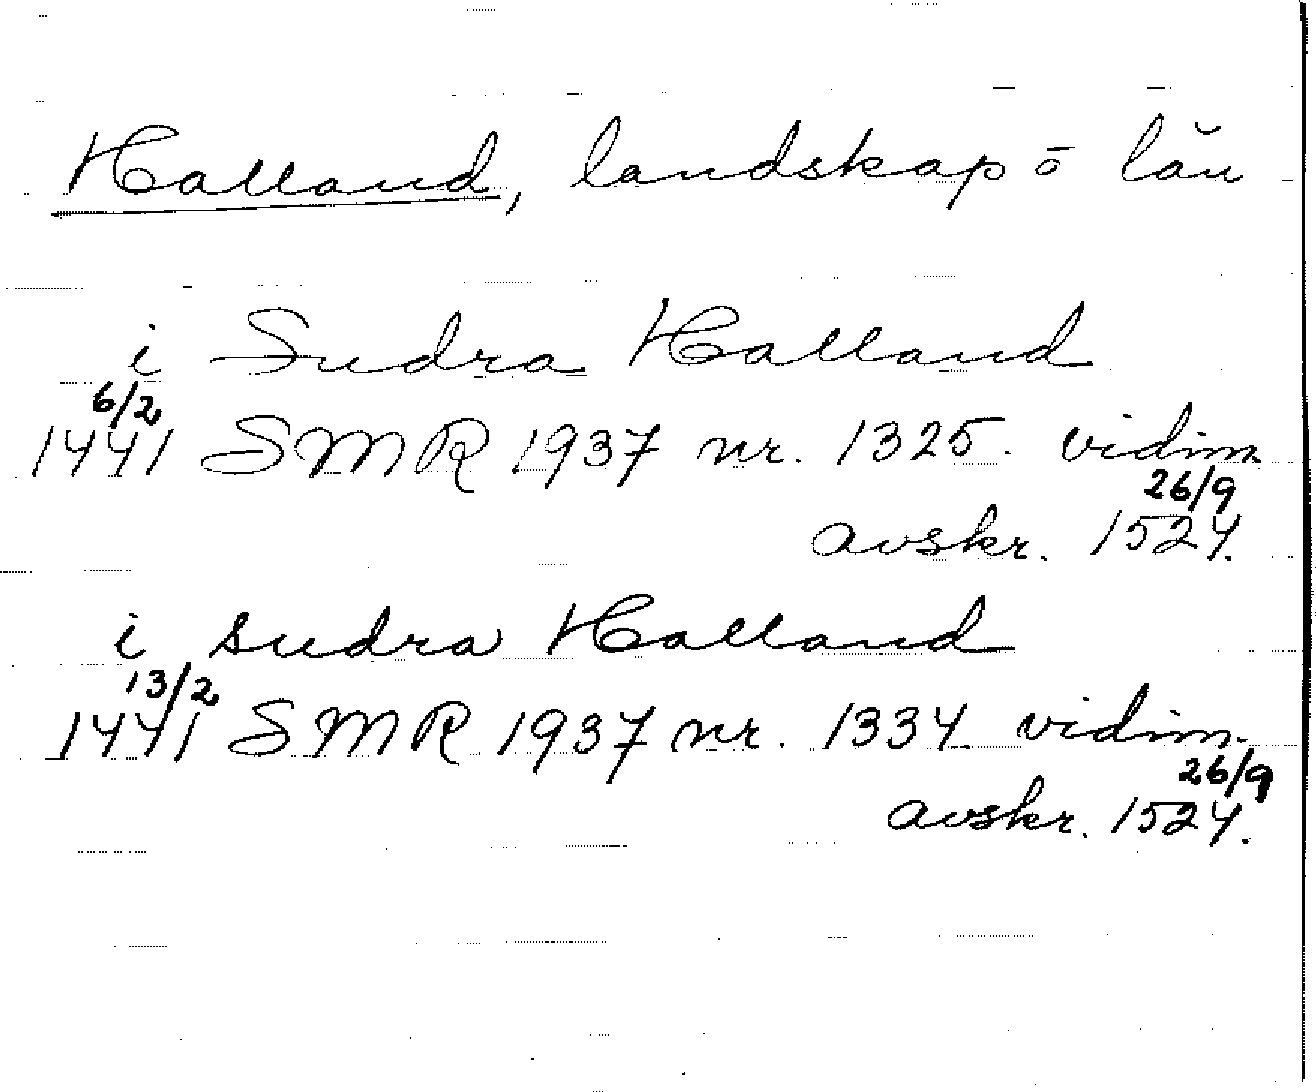 Halland, landskap ō län
i Sudra Halland
6/2
1441 SMR 1937 nr. 1325. vidim.
26/9
avskr. 1524.
i sudra Halland
13/2
1441 SMR 1937 nr. 1334 vidim.
26/9
avskr. 1524.